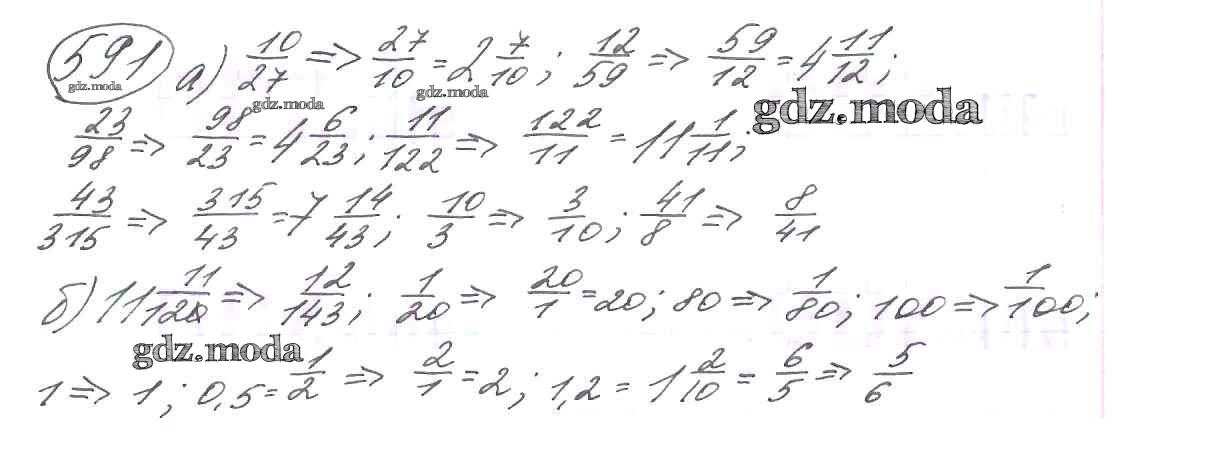 591 а) 10/27 => 27/10 = 2 7/10; 12/59 => 59/12 = 4 11/12;
gdz.moda gdz.moda gdz.moda gdz.moda
23/98 => 98/23 = 4 6/23; 11/122 => 122/11 = 11 1/11;
43/315 => 315/43 = 7 14/43; 10/3 => 3/10; 41/8 => 8/41
б) 11 11/120 => 12/143; 1/20 => 20/1 = 20; 80 => 1/80; 100 => 1/100;
gdz.moda
1 => 1; 0,5 = 1/2 => 2/1 = 2; 1,2 = 1 2/10 = 6/5 => 5/6